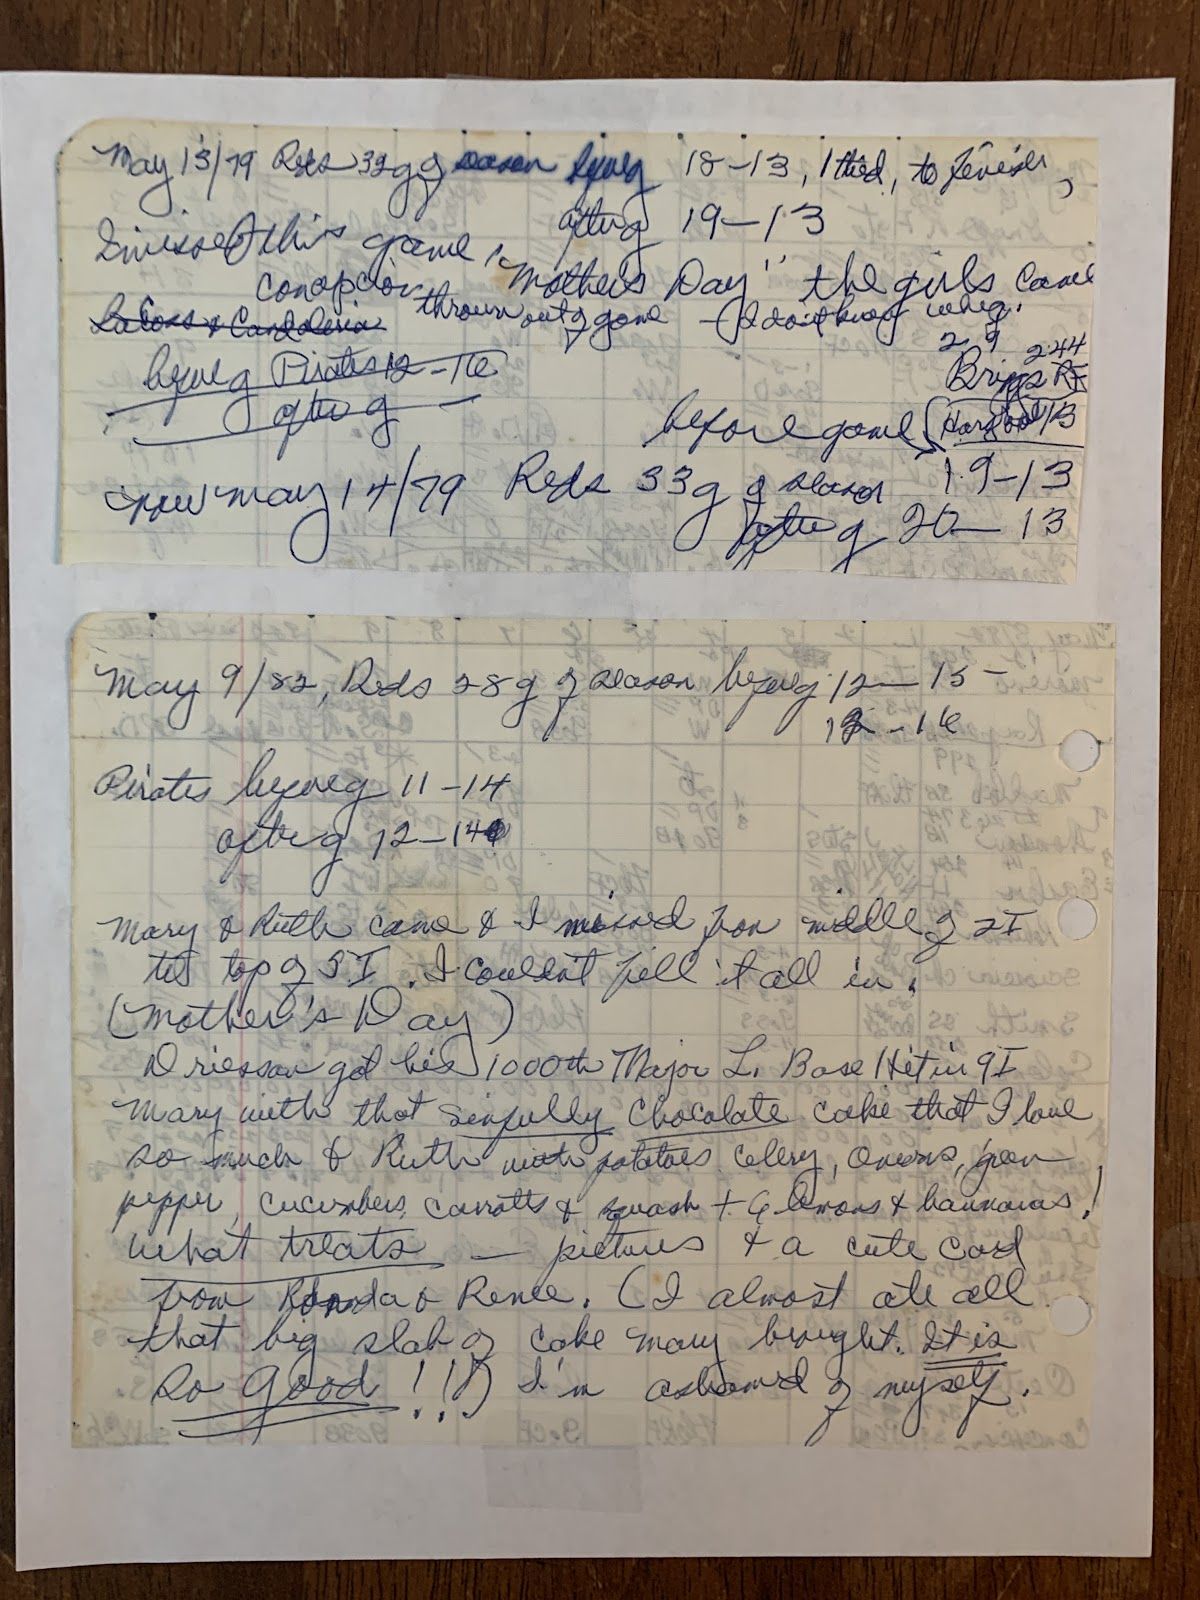 May 13/79 Reds 32g of season before g 18-13, 1 tied, to finish,
after g 19-13
I missed this game, "Mothers Day" the girls came
Concepcion thrown out of game - (I don't know why.
LaCoss & Candelaria
2 9 244
before g Pirates 12-16 Briggs RF
after g -
before game
now May 14/79 Reds 33g of season 19-13
after g 20-13
May 9/82, Reds 28g of season before g 12-15-
12-16
Pirates before g 11-14
after g 12-14
Mary & Ruth came & I missed from middle of 2I
to top of 5I. I couldn't fill it all in.
(Mother's Day)
Driessan got his 1000th Major L. Base Hit in 9I
Mary with that sinfully chocolate cake that I love
so much & Ruth with potatoes celery, onions, green
pepper, cucumbers, carrotts & squash + 6 lemons & bannanas!
What treats - pictures & a cute card
from Rhonda & Renee. (I almost ate all
that big slab of cake Mary brought. It is
So Good!!!) I'm ashamed of myself.